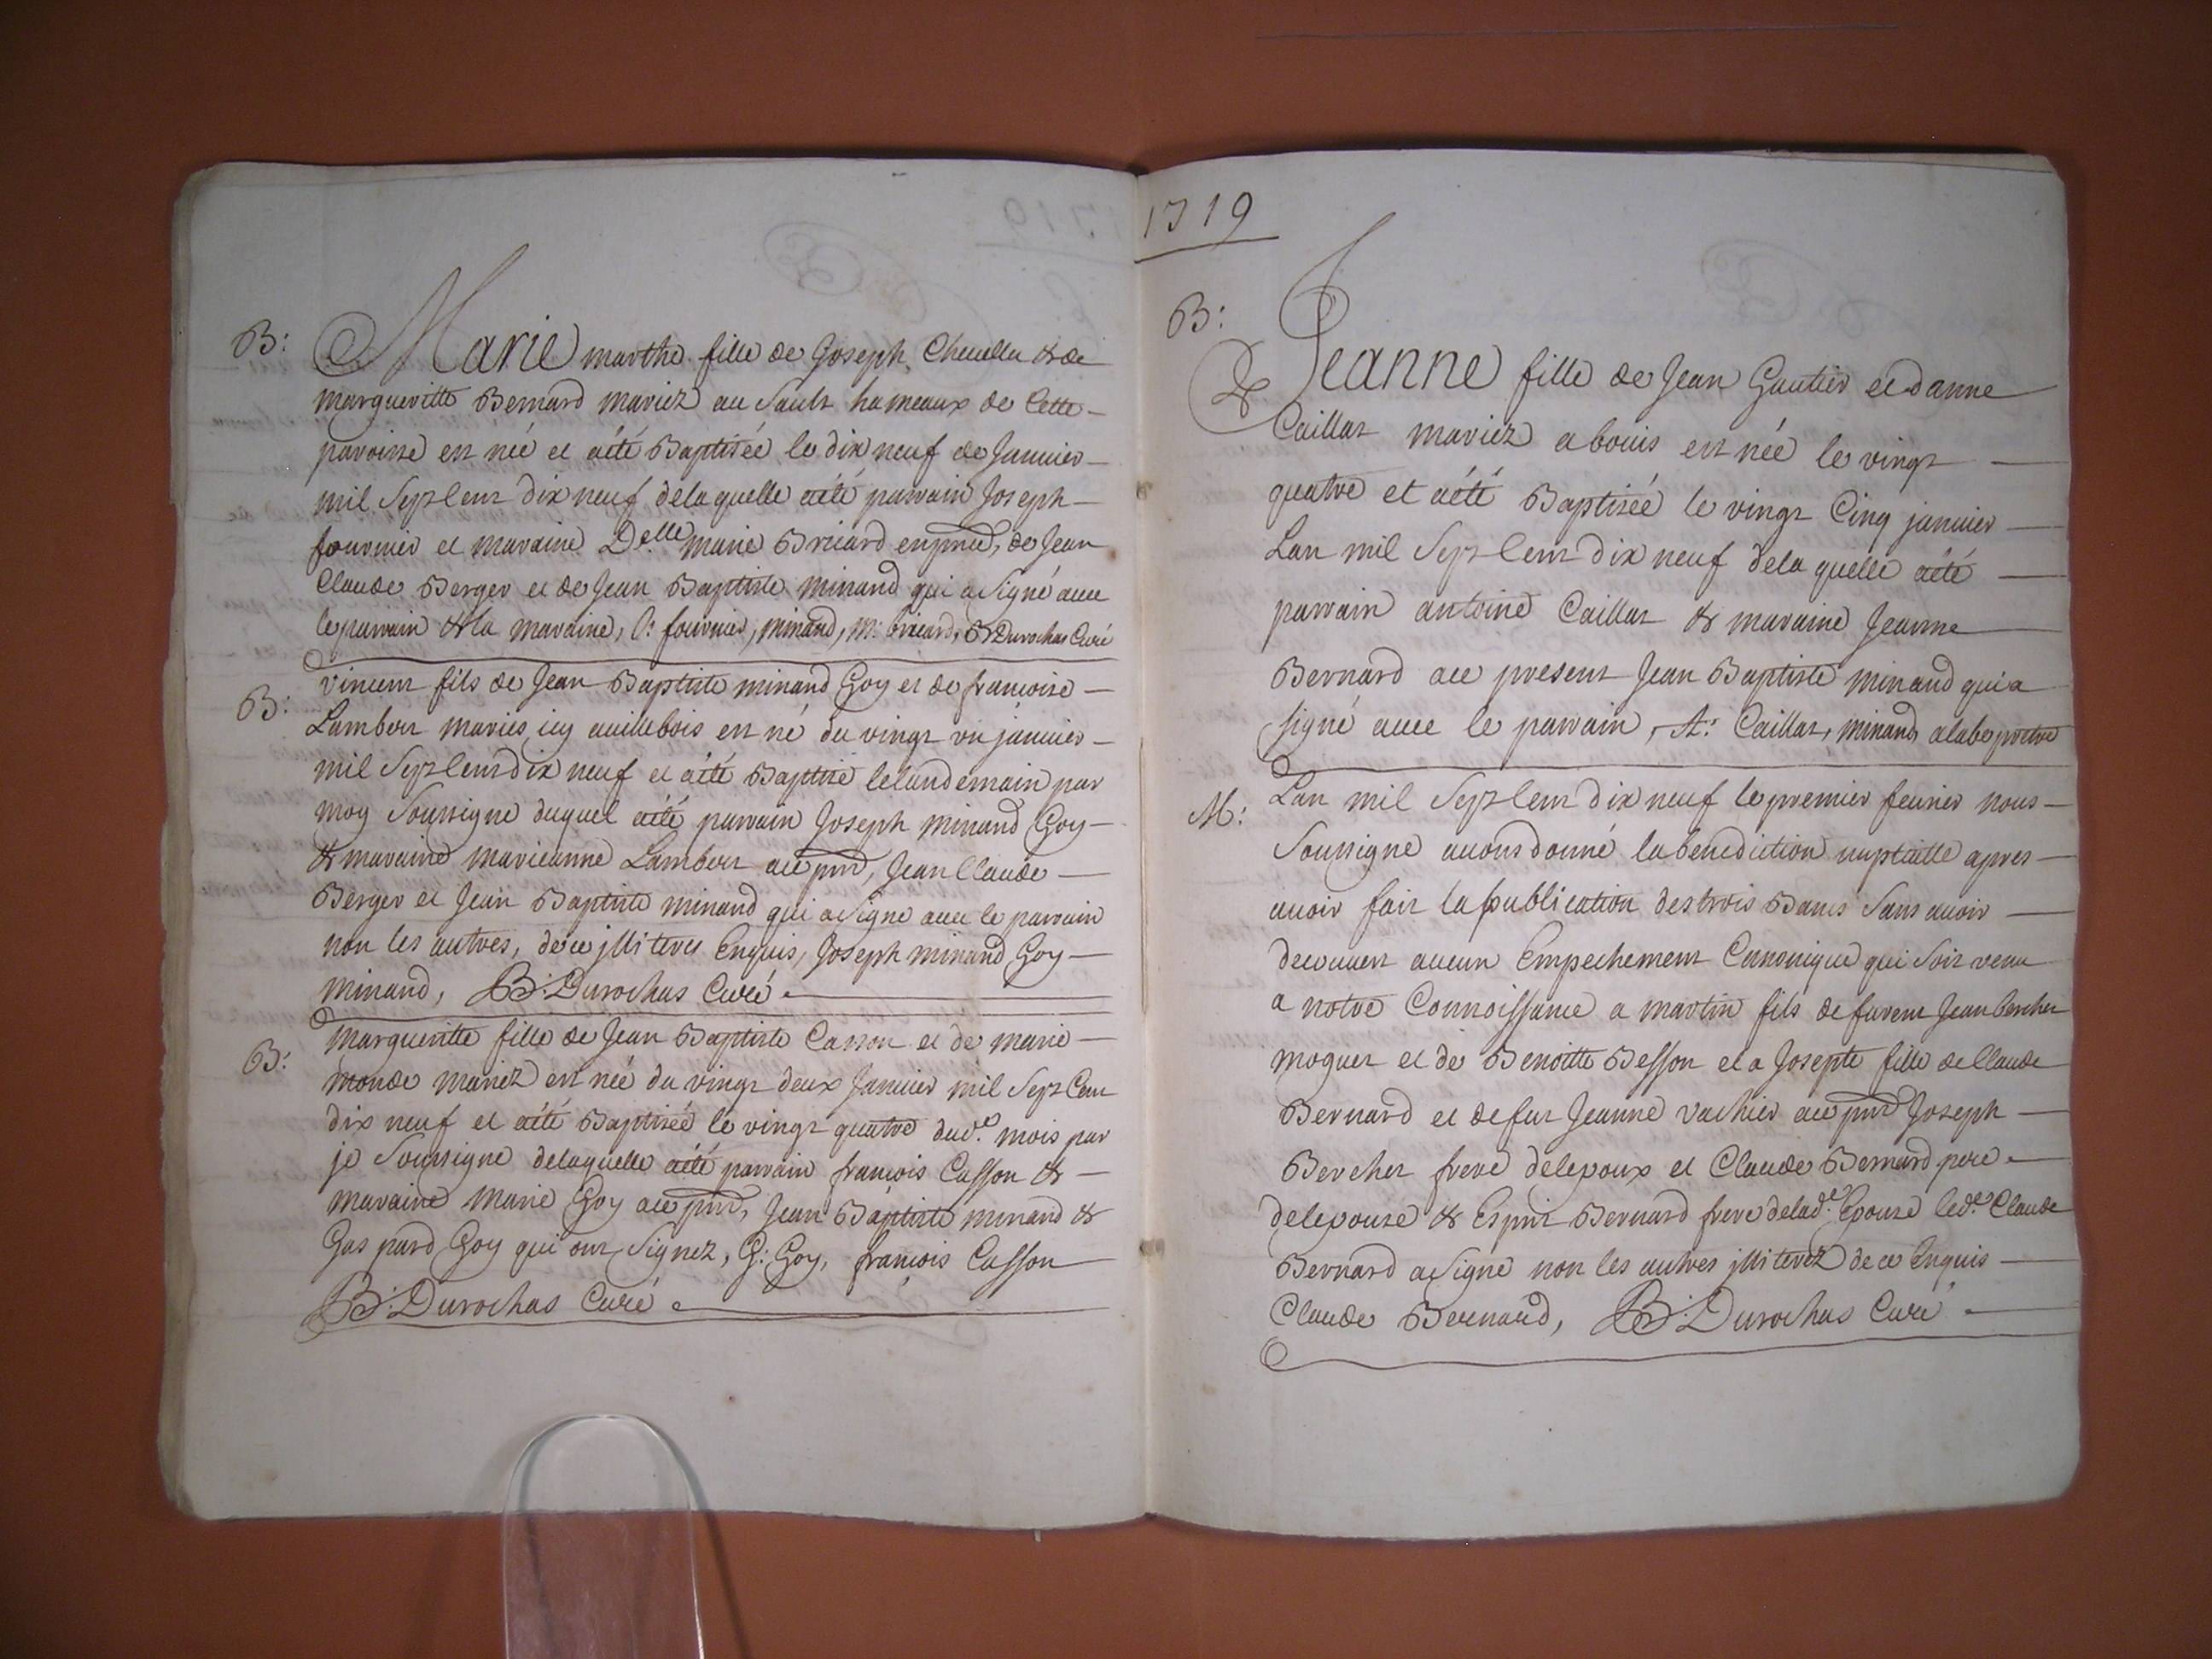 1719
B:
Marie marthe fille de Joseph Cheuella & de
margueritte Bernard mariez au Sault hameaux de Cette
paroisse est née et aété Baptisée le dix neuf de Januier
mil Sept Cent dix neuf dela quelle aété parrain Joseph
fournier et maraine Delle marie Bricard enpnce, de Jean
Claude Berger et de Jean Baptiste minand qui a Signé auec
le parrain & la maraine, J: fournier, minand, m: bricard, B: Durochas Curé
B:
Vincent fils de Jean Baptiste minand Goy et de francoise
Lambert mariés icy auillebois est né du vingt vn januier
mil Sept Cent dix neuf et aété Baptisé lelandemain par
moy Soussigne duquel aété parrain Joseph minand Goy
& maraine marieanne Lambert ace pnt, Jean Claude
Berger et Jean Baptiste minand qui a Signe auec le parrain
non les autres, de ce jlliterés Enquis, Joseph minand Goy
minand, B: Durochas Curé
B:
Marguerite fille de Jean Baptiste Casson et de marie
monde mariez est née du vingt deux Januier mil Sept Cent
dix neuf et aété Baptisée le vingt quatre dud.e mois par
je Soussigne delaquelle aété parrain francois Casson &
maraine marie Goy ace pnt, Jean Baptiste minand &
Gaspard Goy qui ont Signez, G: Goy, francois Casson
B: Durochas Curé
B:
Jeanne fille de Jean Gautier et danne
Caillat mariez abouis est née le vingt
quatre et aété Baptisée le vingt Cinq januier
Lan mil Sept Cent dix neuf dela quelle aété
parrain antoine Caillat & maraine Jeanne
Bernard ace present Jean Baptiste minand qui a
signé auec le parrain, At: Caillat, minand, alabe pretre
M:
Lan mil Sept Cent dix neuf le premier feurier nous
Soussigne auons donné la benediction nuptialle apres
auoir fait la publication des trois Bancs Sans auoir
decouuert aucun Empechement Canonique qui Soit venu
a notre Connoissance a martin fils de furent Jean bercher
moguet et de Benoitte Besson et a Josepte fille de Claude
Bernard et de fut Jeanne Vachier ace pnt Joseph
Bercher frere delepoux et Claude Bernard pere
delepouse & Esprit Bernard frere delad.e Epouse led.e Claude
Bernard a Signé non les autres jlliterez de ce Enquis
Claude Bernard, B: Durochas Curé